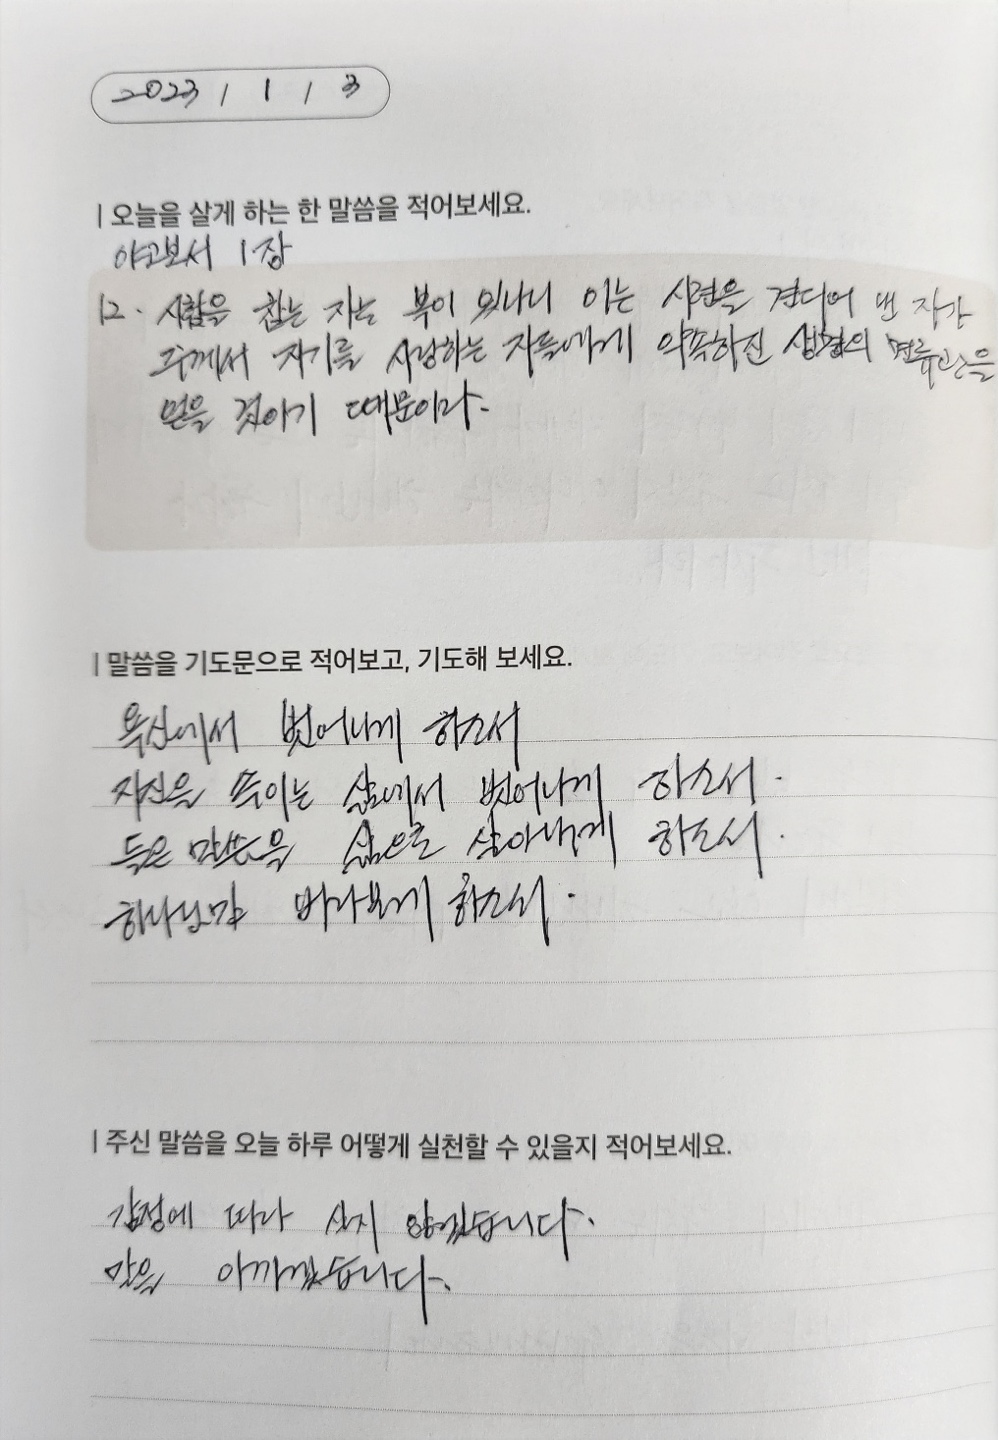 2023 / 1 / 3
| 오늘을 살게 하는 한 말씀을 적어보세요.
야고보서 1장
12. 시험을 참는 자는 복이 있나니 이는 시련을 견디어 낸 자가
주께서 자기를 사랑하는 자들에게 약속하신 생명의 면류관을
얻을 것이기 때문이라.
| 말씀을 기도문으로 적어보고, 기도해 보세요.
욕심에서 벗어나게 하소서
자신을 속이는 삶에서 벗어나게 하소서.
듣은 말씀을 삶으로 살아내게 하소서.
하나님만 바라보게 하소서.
| 주신 말씀을 오늘 하루 어떻게 실천할 수 있을지 적어보세요.
감정에 따라 살지 않겠습니다.
말을 아끼겠습니다.